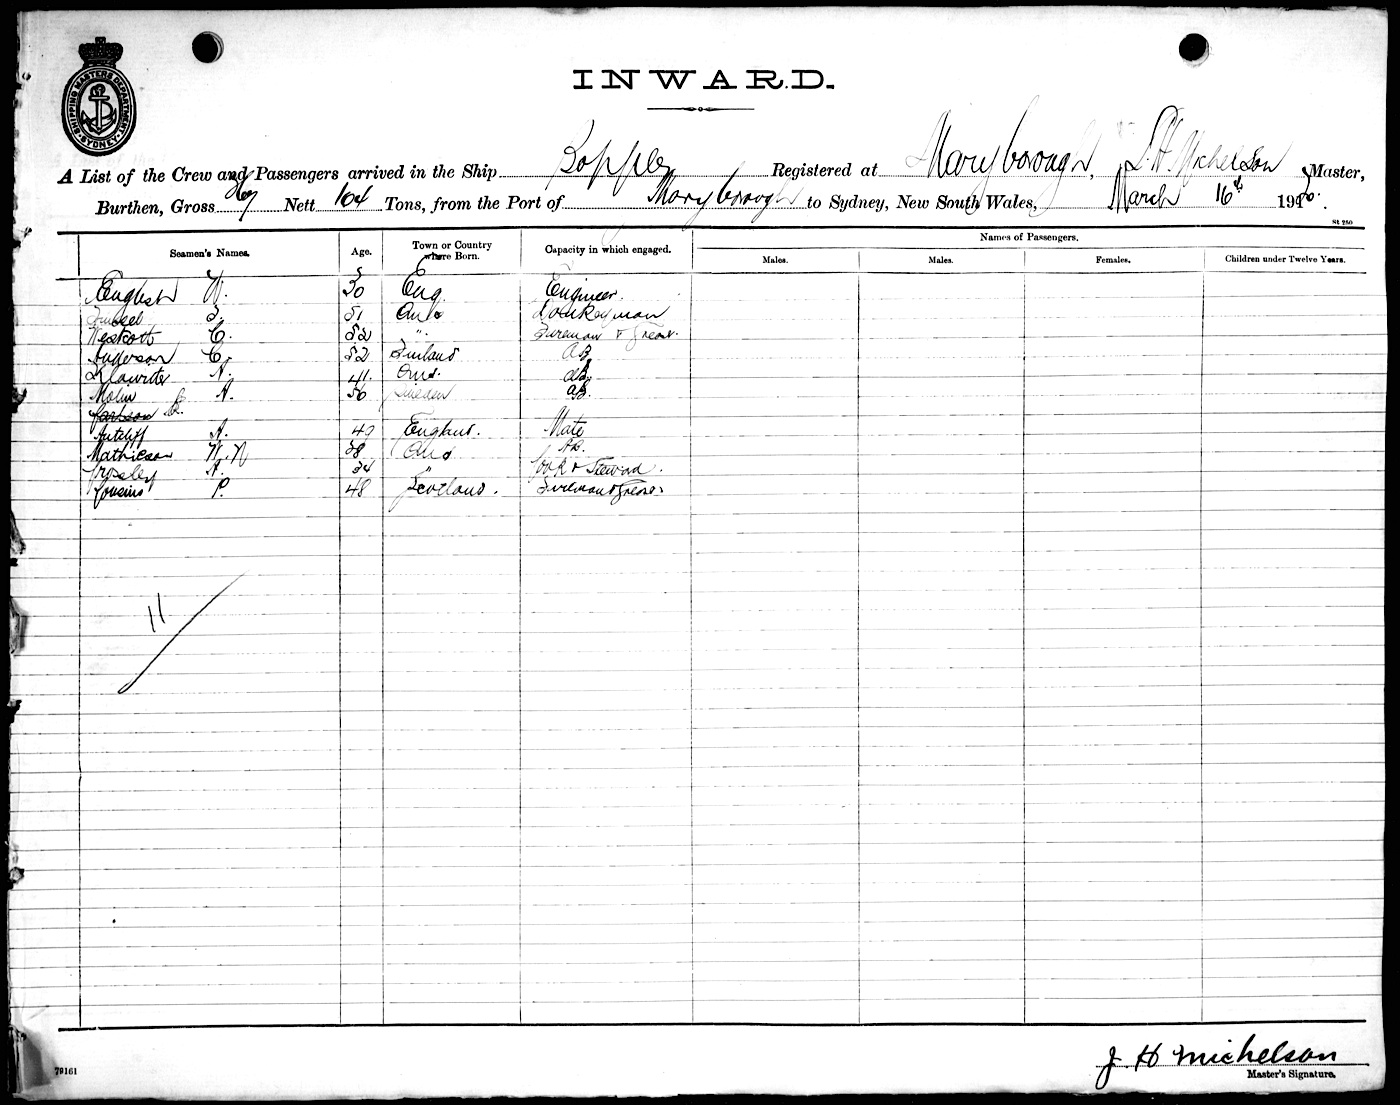 SHIPPING MASTERS DEPARTMENT
SYDNEY
INWARD.
A List of the Crew and Passengers arrived in the Ship Bopple Registered at Maryborough, J. H. Michelson Master,
Burthen, Gross 267 Nett 104 Tons, from the Port of Maryborough to Sydney, New South Wales, March 16th 192
St 250
Seamen's Names. Age. Town or Country where Born. Capacity in which engaged. Names of Passengers.
Males. Males. Females. Children under Twelve Years.
English W. 50 Eng. Engineer.
51 Aus Donkeyman
Weskott C. 52 " Fireman & Greaser
Anderson C. 52 Finland AB
A. 41 Aus. AB
Molin A. 56 Sweden AB.
Jackson
Antcliff A. 49 England. Mate
Mathieson W. N 38 Aus AB.
Crossley A. 34 " Cook & Steward.
Cousins P. 48 Scotland. Fireman & Greaser
11
J H Michelson
Master's Signature.
79161